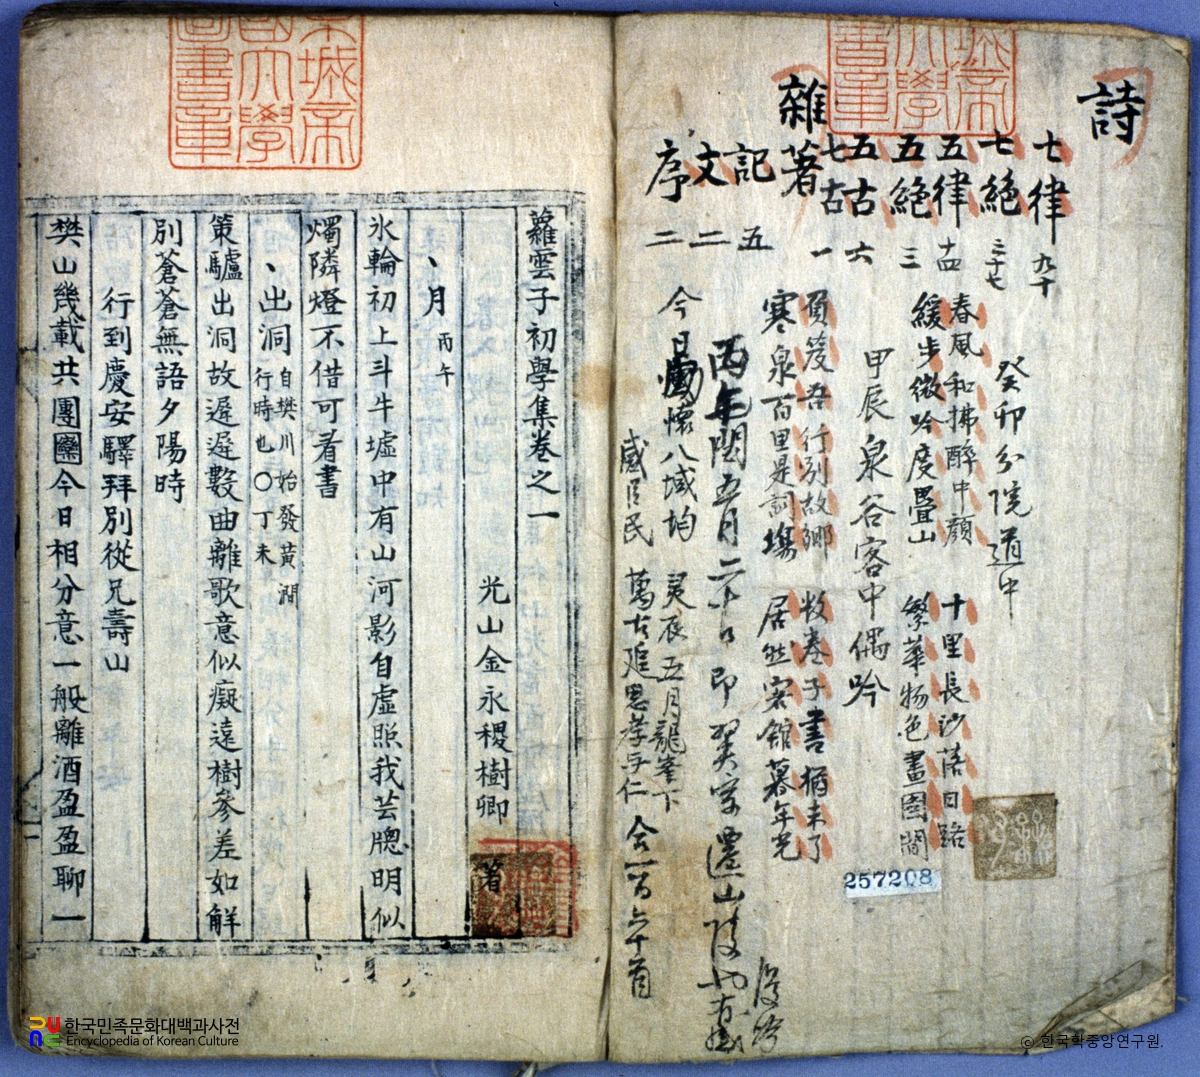 詩
七律 九十
七絕 三十七
五律 十四
五絕 三
五古 六
七古 一
雜著
記 五
文 二
序 二
癸卯分院道中
春風和拂醉中顔 十里長沙落日路
緩步微吟度疊山 繁華物色畫圖間
甲辰泉谷客中偶吟
負笈吾行別故鄉 枚卷子書猶未了
寒泉百里是詞場 居然客館暮年光
丙午閏五月二十日即翼宗遷山陵
今日 懷八域均 五月龍峯下
感 臣民 萬古追思孝与仁
合一百六十首
257208
城帝
大學
圖書章
蘿雲子初學集卷之一
光山金永稷樹卿 著
、月 丙午
氷輪初上斗牛墟中有山河影自虛照我芸牕明似
燭隣燈不借可看書
、出洞 自樊川始發黃澗行時也○丁未
策驢出洞故遲遲數曲離歌意似癡遠樹參差如解
別蒼蒼無語夕陽時
行到慶安驛拜別從兄壽山
樊山幾載共團圞今日相分意一般離酒盈盈聊一
한국민족문화대백과사전
Encyclopedia of Korean Culture
ⓒ 한국학중앙연구원.